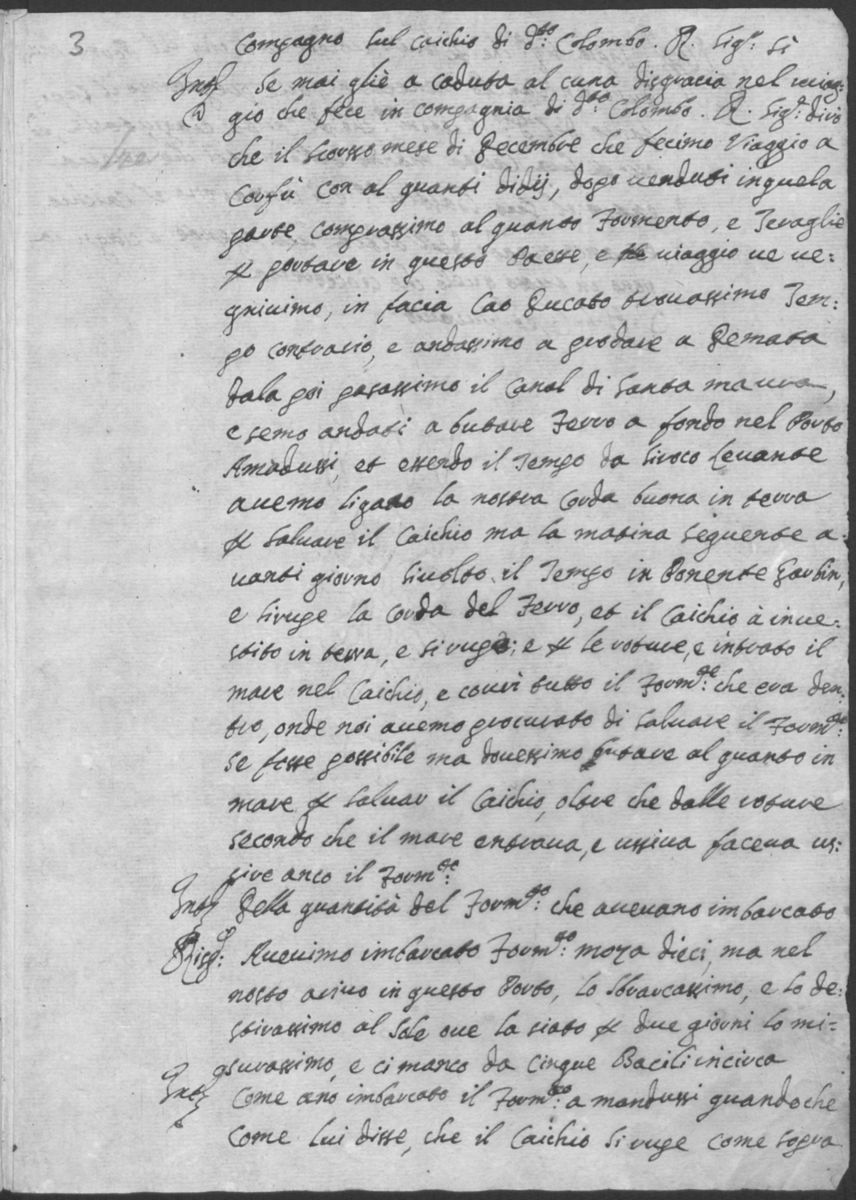 3
Compagno sul Caichio di d:to Colombo. R. Sig:r Si
Int:o Se mai gliè a caduta al cuna disgracia nel viag=
gio che fece in compagnia di d:to Colombo. R. Sig:r dirò
che il scorso mese di Decembre che fecimo Viaggio a
Corfù con al quanti didij, dopo venduti in quela
parte comprassimo al quanto Formento, e Tevaglie
portare in questo Paese, e viaggio ve ne=
gnivimo, in facia Cao Ducato trovassimo Tem=
po contrario, e andassimo a prodare a Demata
dala poi pasassimo il Canal di Santa maura,
e semo andati a butare Ferro a fondo nel Porto
Amadussi, et essendo il Tempo da Siroco Levante
avemo ligato la nostra Corda buona in terra
salvare il Caichio ma la matina seguente a=
vanti giorno si volto il Tempo in Ponente Garbin,
e si rupe la Corda del Ferro, et il Caichio à inve=
stito in terra, e si rupe; e le roture, e intrato il
mare nel Caichio, e covrì tutto il Form:to che era den=
tro, onde noi avemo procurato di salvare il Form:to
se fosse possibile ma dovessimo butare al quanto in
mare salvar il Caichio, oltre che dalle roture
secondo che il mare entrava, e ussiva faceva us=
sire anco il Form:to
Int:o Della quantità del Form:to che avevano imbarcato
Risp: Avevimo imbarcato Form:to moza dieci, ma nel
nostro arivo in questo Porto, lo sbarcassimo, e lo de=
stirassimo al Sole ove la stato due giorni lo mi=
surassimo, e ci manco da cinque Bacili incirca
Int:o Come anò imbarcato il Form:to a mandussi quando che
come lui disse, che il Caichio si rupe come sopra